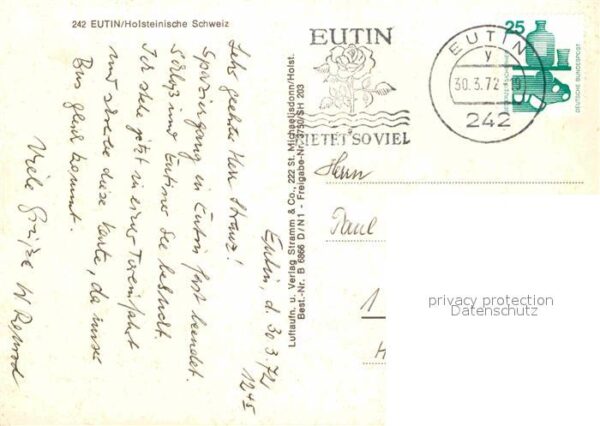 242 EUTIN/Holsteinische Schweiz
Eutin, d. 30.3.72
1245
Sehr geehrter Herr Stranz!
Spaziergang in Eutin fort beendet.
Schloß und Eutiner See besucht.
Ich stehe jetzt in einer Toreinfahrt
und schreibe diese Karte, da unser
Bus gleich kommt.
Viele Grüße W
Luftaufn. u. Verlag Stramm & Co., 222 St. Michaelisdonn/Holst.
Best.-Nr. B 6866 D/N1 - Freigabe-Nr. 3750/SH 203
EUTIN
BIETET SO VIEL
EUTIN
y
30.3.72
242
25
DEUTSCHE BUNDESPOST
Herrn
Paul
1
privacy protection
Datenschutz